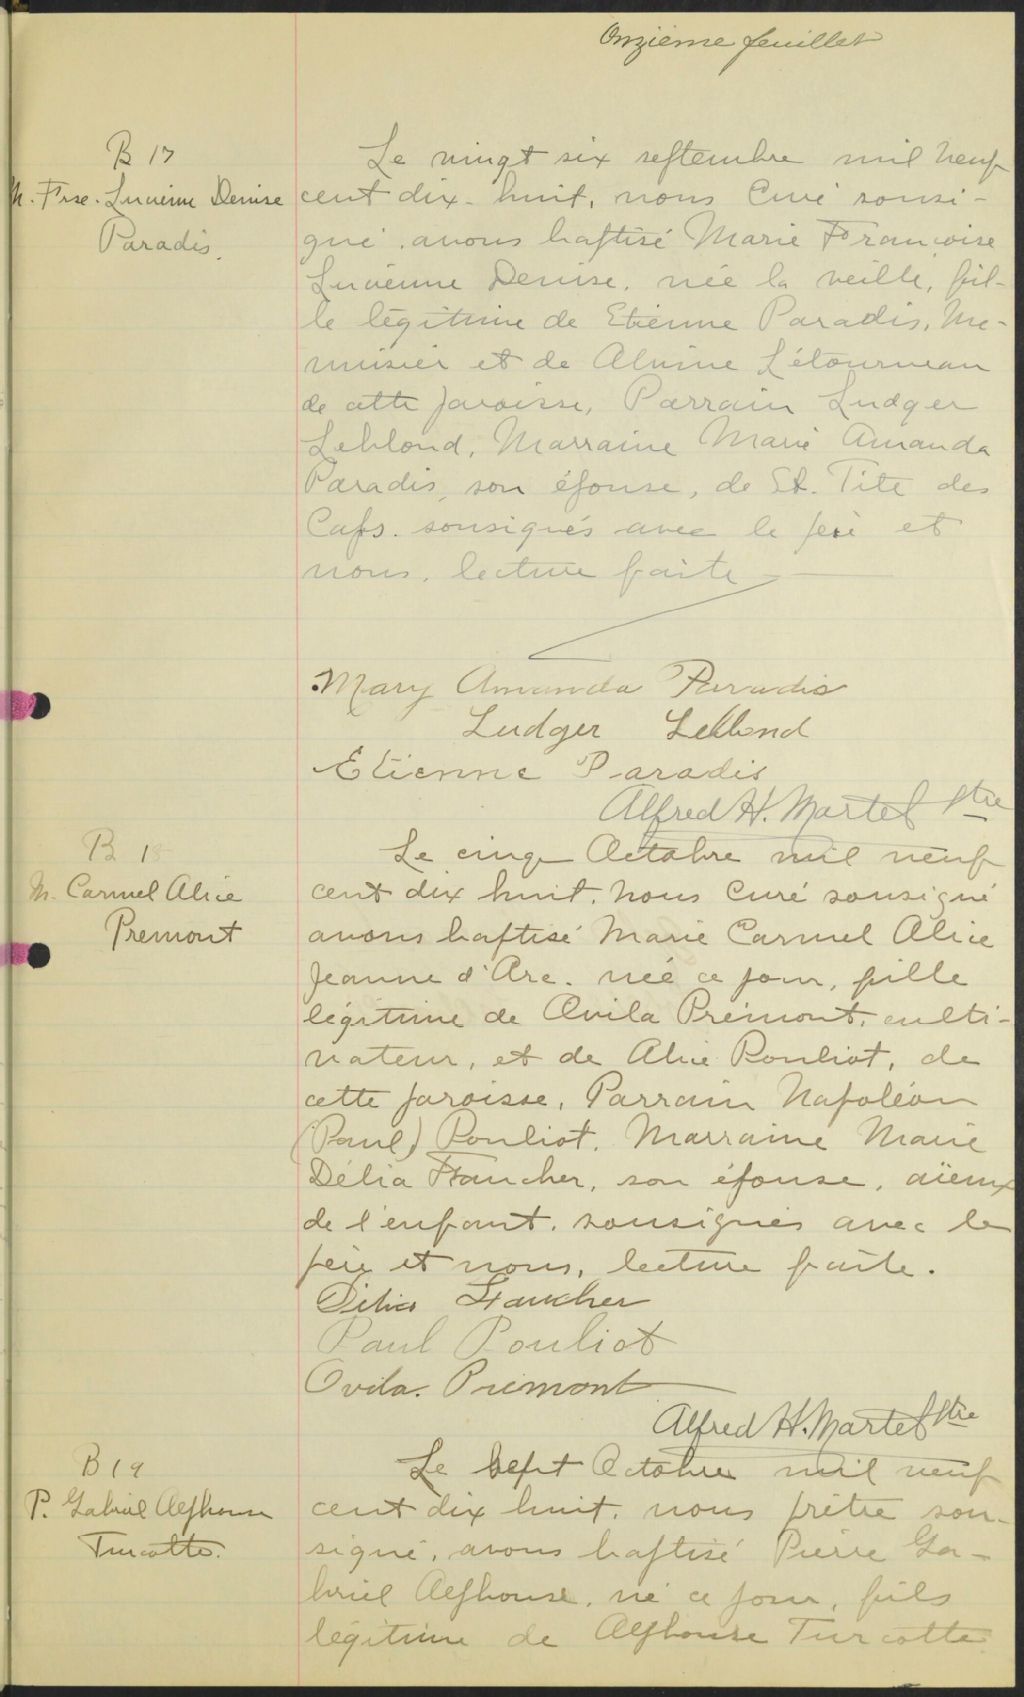 Onzième feuillet
B 17
M. Frse. Lucienne Denise
Paradis.
Le vingt six septembre mil neuf
cent dix-huit, nous Curé sousi-
gné, avons baptisé Marie Françoise
Lucienne Denise, née la veille, fil-
le légitime de Etienne Paradis, Me-
nuisier et de Alvine Létourneau
de cette paroisse, Parrain Ludger
Leblond, Marraine Marie Amanda
Paradis, son épouse, de St. Tite des
Caps. sousignés avec le père et
nous, lecture faite
Mary Amanda Paradis
Ludger Leblond
Etienne Paradis
Alfred H. Martel Ptre
B 18
M. Carmel Alice
Premont
Le cinq Octobre mil neuf
cent dix huit, nous Curé sousigné
avons baptisé Marie Carmel Alice
Jeanne d'Arc. née ce jour, fille
légitime de Ovila Prémont, culti-
vateur, et de Alice Pouliot, de
cette paroisse, Parrain Napoléon
(Paul) Pouliot, Marraine Marie
Délia Faucher, son épouse, aïeux
de l'enfant, sousignés avec le
père et nous, lecture faite.
Délia Faucher
Paul Pouliot
Ovila Premont
Alfred H. Martel Ptre
B 19
P. Gabriel Alphonse
Turcotte.
Le sept Octobre mil neuf
cent dix huit, nous prêtre sou-
signé, avons baptisé Pierre Ga-
briel Alphonse, né ce jour, fils
légitime de Alphonse Turcotte